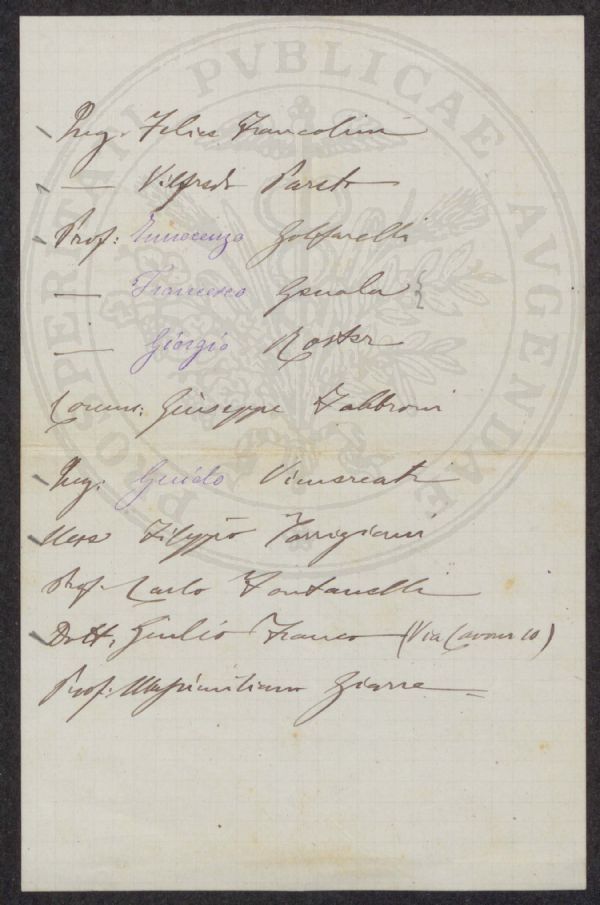 PROSPERITATI PVBLICAE AVGENDAE
Ing. Felice Francolini
— Vilfredo Pareto
Prof: Innocenzo Golfarelli
— Francesco Genala
— Giorgio Roster
Comm: Giuseppe Fabbroni
Ing. Guido Vimercati
March Filippo Torrigiani
Prof. Carlo Fontanelli
Dott. Giulio Franco (Via Cavour 10)
Prof. Massimiliano Giarre